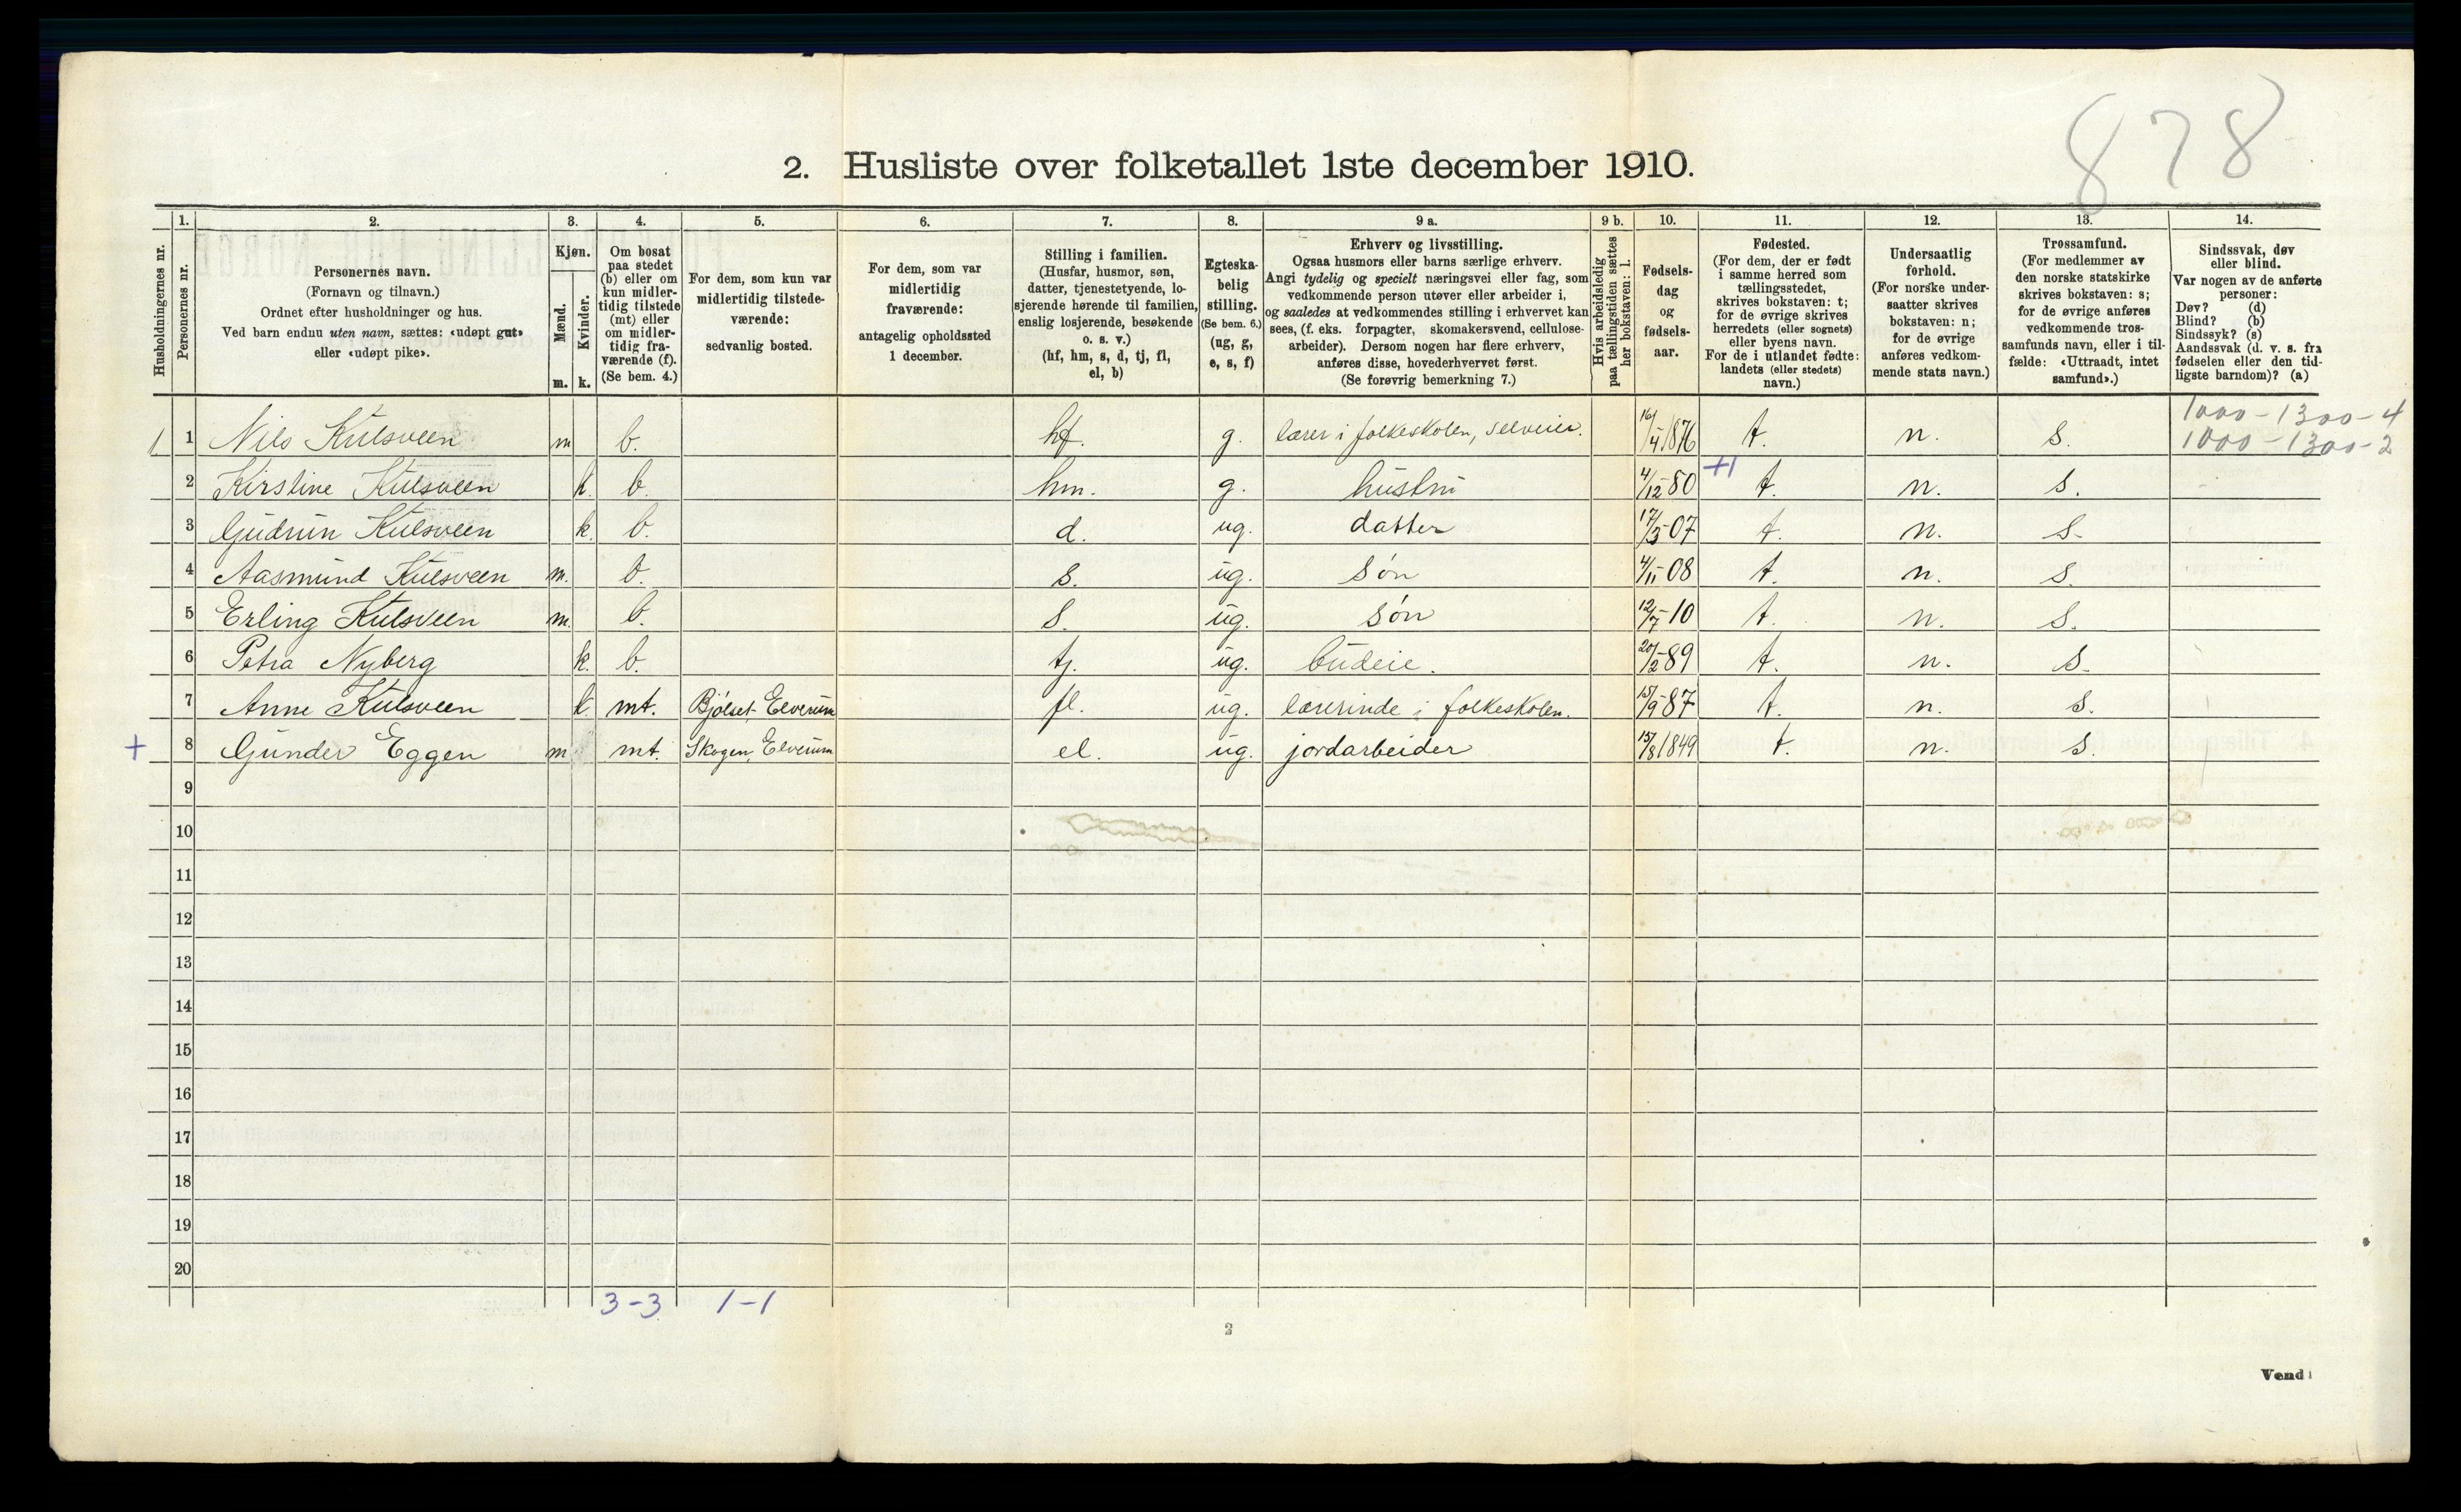 878
2. Husliste over folketallet 1ste december 1910.
Husholdningernes nr.
1.
Personernes nr.
2.
Personernes navn.
(Fornavn og tilnavn.)
Ordnet efter husholdninger og hus.
Ved barn endnu uten navn, sættes: «udøpt gut»
eller «udøpt pike».
3.
Kjøn.
Mænd.
Kvinder.
m. k.
4.
Om bosat
paa stedet
(b) eller om
kun midler-
tidig tilstede
(mt) eller
om midler-
tidig fra-
værende (f).
(Se bem. 4.)
5.
For dem, som kun var
midlertidig tilstede-
værende:
sedvanlig bosted.
6.
For dem, som var
midlertidig
fraværende:
antagelig opholdssted
1 december.
7.
Stilling i familien.
(Husfar, husmor, søn,
datter, tjenestetyende, lo-
sjerende hørende til familien,
enslig losjerende, besøkende
o. s. v.)
(hf, hm, s, d, tj, fl,
el, b)
8.
Egteska-
belig
stilling.
(Se bem. 6.)
(ug, g,
e, s, f)
9 a.
Erhverv og livsstilling.
Ogsaa husmors eller barns særlige erhverv.
Angi tydelig og specielt næringsvei eller fag, som
vedkommende person utøver eller arbeider i,
og saaledes at vedkommendes stilling i erhvervet kan
sees, (f. eks. forpagter, skomakersvend, cellulose-
arbeider). Dersom nogen har flere erhverv,
anføres disse, hovederhvervet først.
(Se forøvrig bemerkning 7.)
9 b.
Hvis arbeidsledig
paa tællingstiden sættes
her bokstaven: l.
10.
Fødsels-
dag
og
fødsels-
aar.
11.
Fødested.
(For dem, der er født
i samme herred som
tællingsstedet,
skrives bokstaven: t;
for de øvrige skrives
herredets (eller sognets)
eller byens navn.
For de i utlandet fødte:
landets (eller stedets)
navn.)
12.
Undersaatlig
forhold.
(For norske under-
saatter skrives
bokstaven: n;
for de øvrige
anføres vedkom-
mende stats navn.)
13.
Trossamfund.
(For medlemmer av
den norske statskirke
skrives bokstaven: s;
for de øvrige anføres
vedkommende tros-
samfunds navn, eller i til-
fælde: «Uttraadt, intet
samfund».)
14.
Sindssvak, døv
eller blind.
Var nogen av de anførte
personer:
Døv? (d)
Blind? (b)
Sindssyk? (s)
Aandssvak (d. v. s. fra
fødselen eller den tid-
ligste barndom)? (a)
1000-1300-4
1 1 Nils Kulsveen m b. hf. g. lærer i folkeskolen, selveier. 16/4 1876 t. n. s. 1000-1300-2
2 Kirstine Kulsveen k. b. hm. g. hustru 4/12-80 +1 t. n. s.
3 Gudrun Kulsveen k. b. d. ug. datter 17/5-07 t. n. s.
4 Aasmund Kulsveen m. b. s. ug. søn 4/11-08 t. n. s.
5 Erling Kulsveen m. b. s. ug. søn 12/7-10 t. n. s.
6 Petra Nyberg k. b. tj. ug. budeie. 20/2-89 t. n. s.
7 Anne Kulsveen k. mt. Bjølset Elverum fl. ug. lærerinde i folkeskolen. 15/9-87 t. n. s.
+ 8 Gunder Eggen m mt. Skogen, Elverum el. ug. jordarbeider 15/8 1849 t. n. s.
9
10
11
12
13
14
15
16
17
18
19
20
3-3 1-1
2
Vend!